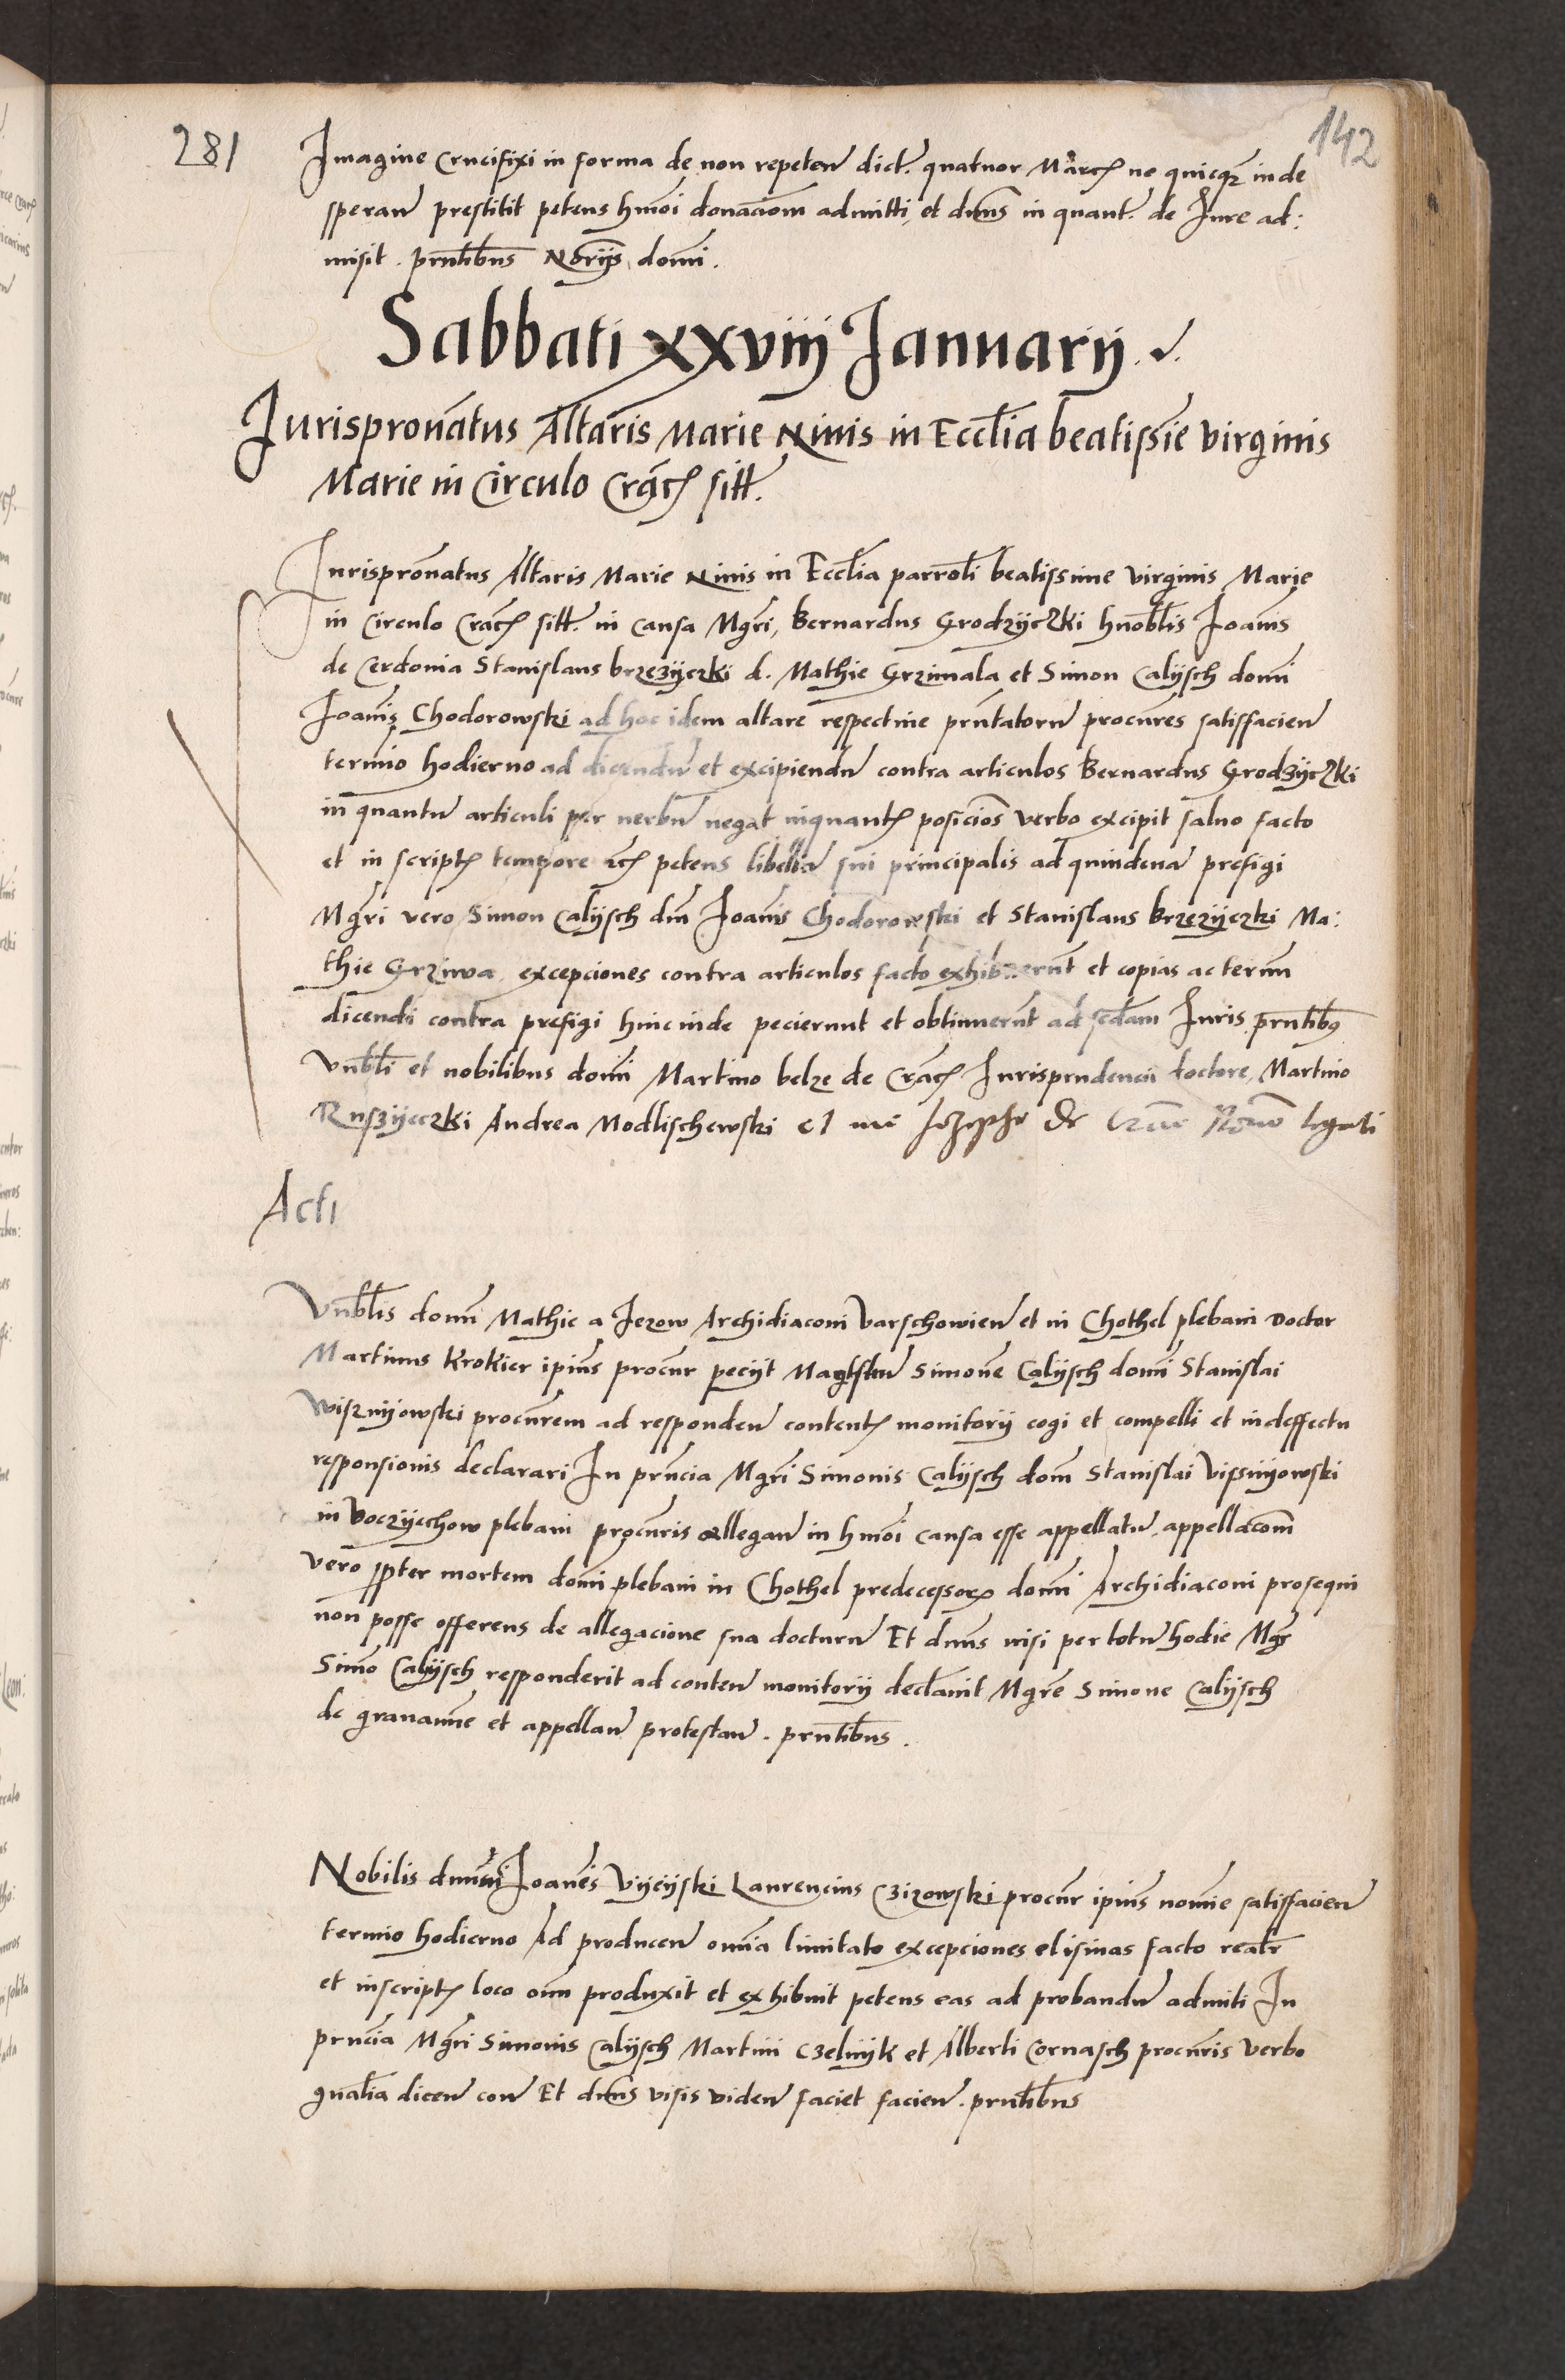 281
142
Imagine Crucifixi in forma de non repeten dict. quatuor Marcꝭ ne quicqꝫ inde
speran prestitit petens hmoi donaciom admitti, et dnus in quant. de Iure ad:
misit. prntibus Nōrijs domi.
Sabbati xxviij Ianuarij
Jurispronatus Altaris Marie Niuis in Ecclia beatissie virginis
Marie in Circulo Cracꝭ sitt.
Jurispronatus Altaris Marie Niuis in Ecclia parrocli beatissime virginis Marie
in Circulo Cracꝭ sitt. in causa Mgri, Bernardus Grodzyczki hnoblis Joanis
de Cerdonia Stanislaus brzezyczki d. Mathie Grzimala et Simon Calijsch domi
Joanis Chodorowski ad hoc idem altare respectiue prntatoru procures satisfacien
termio hodierno ad dicendu et excipiendu contra articulos Bernardus Grodzyczki
in quantu articuli per verbu negat inquantꝭ posicios verbo excipit saluo facto
et in scriptꝭ tempore petens libellu sui principalis ad quindena prefigi
Mgri vero Simon Calijsch dm Joanis Chodorowski et Stanislaus brzezijczki Ma:
thie Grzima excepciones contra articulos facto exhibuerunt et copias ac termm
dicendi contra prefigi hincinde pecierunt et obtinuerunt ad sedam Iuris prntibꝰ
Vnbli et nobilibus domi Martino belze de Cracꝭ Iurisprudencii doctore, Martino
Ruszijeczki Andrea Modlischewski et me legati
Acti
Vnblis domi Mathie a Jezow Archidiaconi Varschowien et in Chothel plebani Doctor
Martinus Krokier ipius procur pecijt Magistru Simone Calijsch domi Stanislai
wisznijowski procurem ad responden contentꝭ monitorij cogi et compelli et in deffectu
responsionis declarari In prncia Mgri Simonis Calijsch dom Stanislai Vissnijowski
in Voczijechow plebani procuris allegan in hmoi causa esse appellatu, appellacom
vero ppter mortem domi plebani in Chothel predecessor domi Archidiaconi prosequi
non posse offerens de allegacione sua docturu Et dnus nisi per totu hodie Mgr
Simo Calijsch responderit ad conten monitorij declauit Mgre Simone Calijsch
de grauamie et appellan protestan. prntibus.
Nobilis domi Joanes Vijeijski Laurencius Czizowski procur ipius nomie satisfacien
termio hodierno Ad producen omia limitato excepciones elisiuas facto realr
et inscriptꝭ loco oim produxit et exhibuit petens eas ad probandu admiti In
prncia Mgri Simonis Calijsch Martini Czelnijk et Alberti Cornasch procuris verbo
gnalia dicen con Et dnus visis viden faciet facien. prntibus